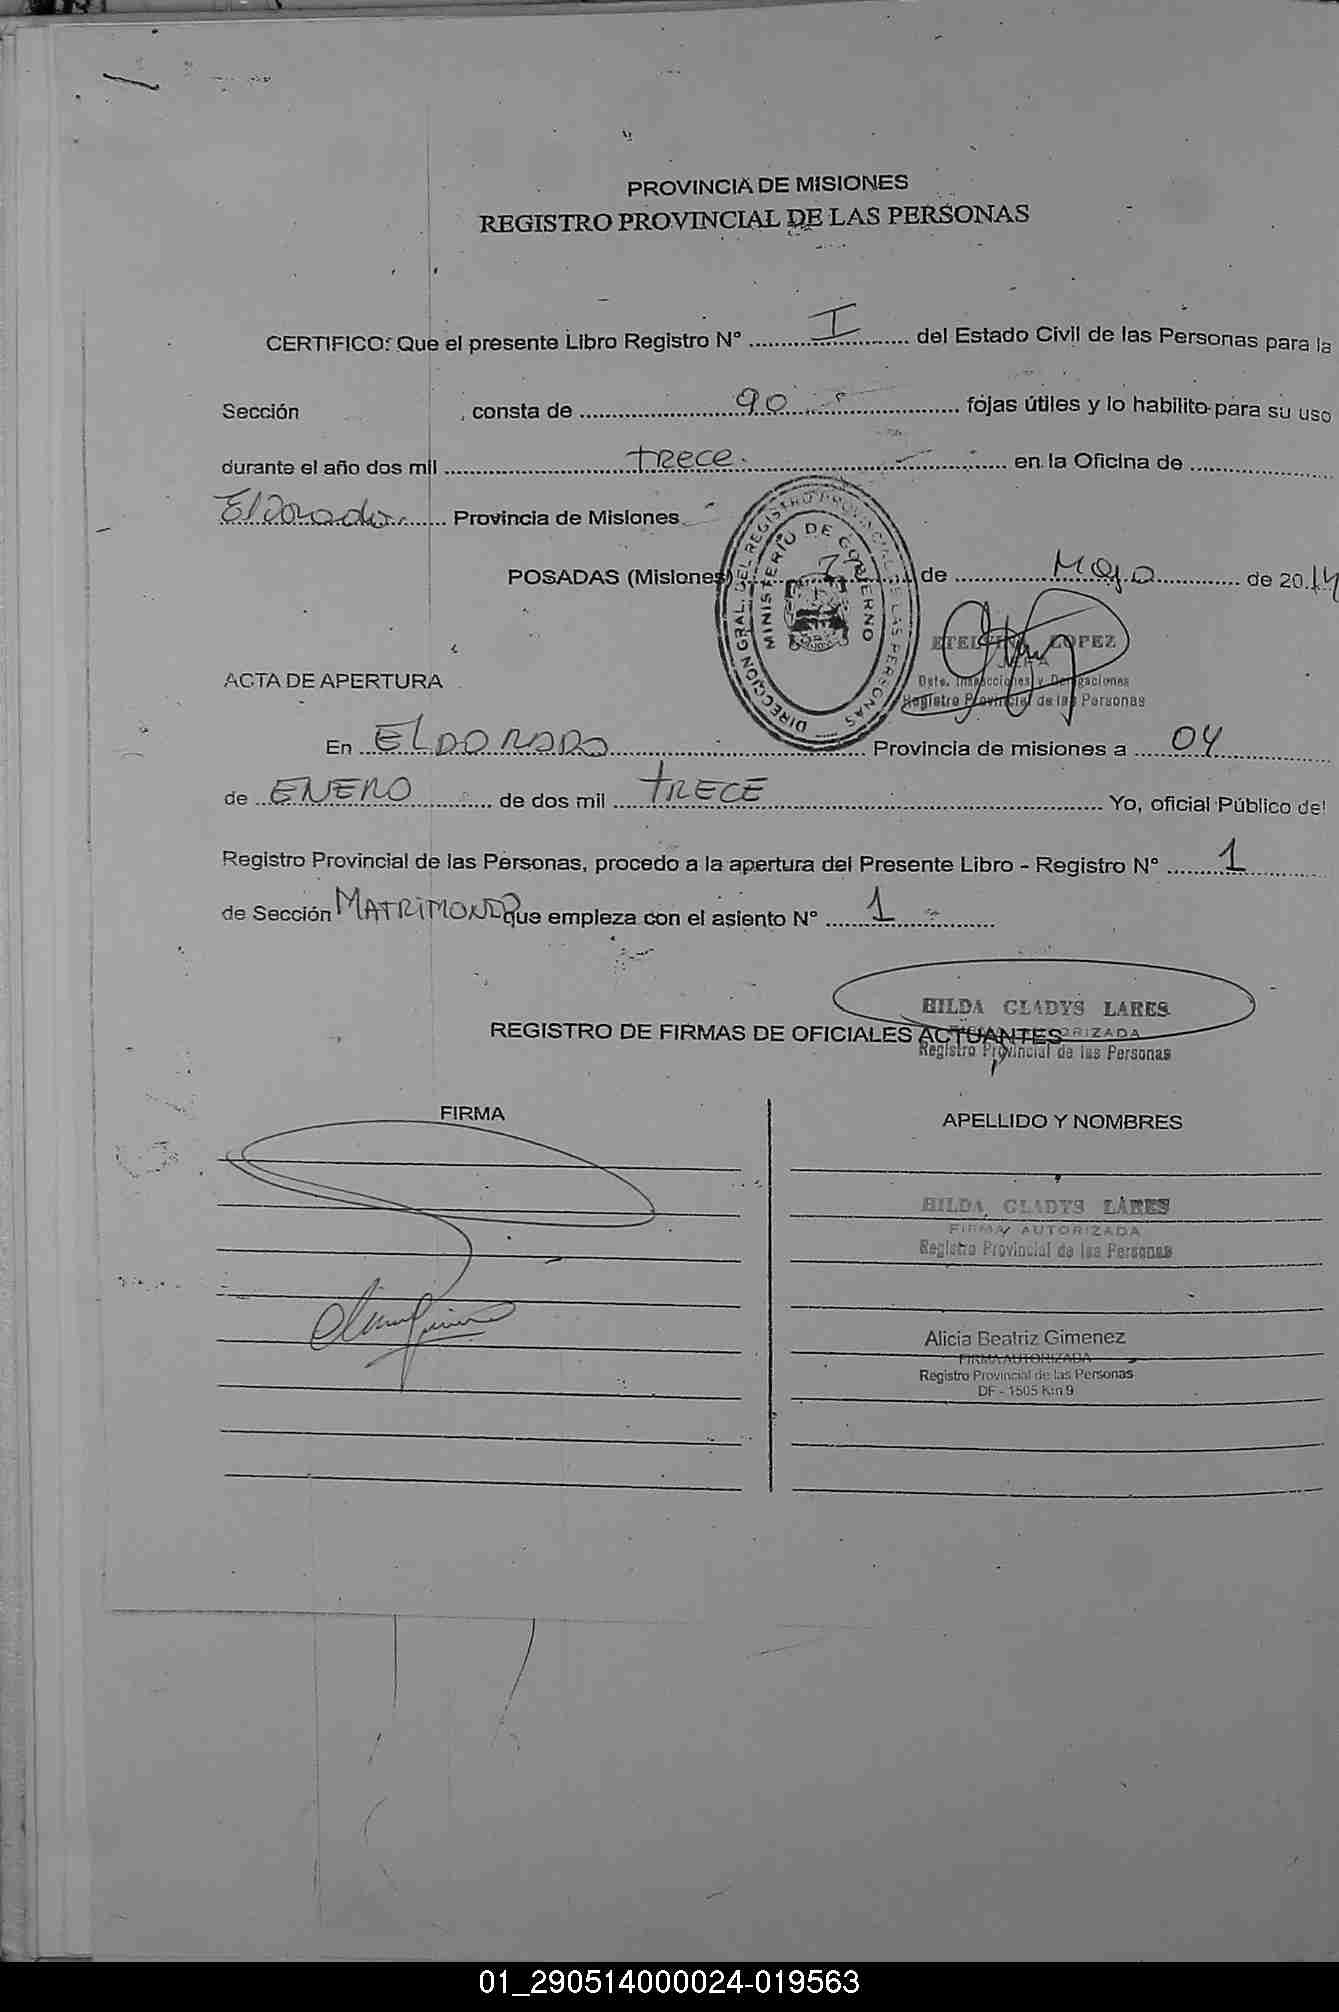 PROVINCIA DE MISIONES
REGISTRO PROVINCIAL DE LAS PERSONAS
CERTIFICO: Que el presente Libro Registro N° I del Estado Civil de las Personas para la
Sección , consta de 90 fojas útiles y lo habilito para su uso
durante el año dos mil trece en la Oficina de
ElDorado Provincia de Misiones
DIRECCION GRAL. DEL REGISTRO PROVINCIAL DE LAS PERSONAS
MINISTERIO DE GOBIERNO
POSADAS (Misiones) 7 de Mayo de 2014
LOPEZ
JEFA
Dsto. Inspecciones y Delegaciones
Registro Provincial de las Personas
ACTA DE APERTURA
En ELDORADO Provincia de misiones a 04
de ENERO de dos mil TRECE Yo, oficial Público del
Registro Provincial de las Personas, procedo a la apertura del Presente Libro - Registro N° 1
de Sección MATRIMONIO que empieza con el asiento N° 1
HILDA GLADYS LARES
FIRMA AUTORIZADA
Registro Provincial de las Personas
REGISTRO DE FIRMAS DE OFICIALES ACTUANTES
FIRMA
APELLIDO Y NOMBRES
HILDA GLADYS LARES
FIRMA AUTORIZADA
Registro Provincial de las Personas
Alicia Beatriz Gimenez
FIRMA AUTORIZADA
Registro Provincial de las Personas
DF - 1505 Km 9
01_290514000024-019563